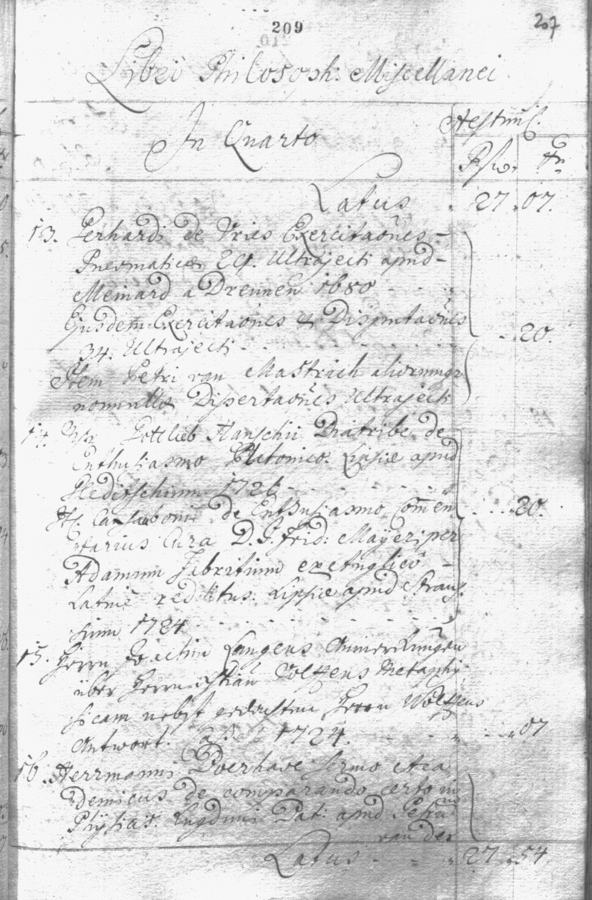 209
207
Libri Philosoph: Miscellanei
In Quarto
Aestim.
Latus 27 07.
13. Gerhardi de Vries Exercitaones
Pneumaticae Ultrajecti apud
Meinard a Dreunen 1680
Ejusdem Exercitaones & Disputaones
34. Ultrajecti 20.
Item Petri von Mastrich aliorumq
nonnullae Disertaones Ultrajecti
14. Gottlieb Hanschii Diatribe de
Enthusiasmo Platonico. Lipsiae apud
Gleditschium 1716
Casauboni de Enthusiasmo Com̄en 20.
tarius Cura D. J. Frid: Mayeri per
Adamum Fabritium ex Anglico
Latine redditus: Lipsiae apud Graus
sium 1724
15. Herrn Joachim Langens Anmerckungen
über Herrn Wolffens Metaphy
sicam nebst Herrn Wolffens
Antwort. 1724 07
16. Herrmanni Boerhave Sermo Aca
demicus de comparando certo in
Physicis. Lugduni Bat: apud Petru
van der
Latus 27 54.